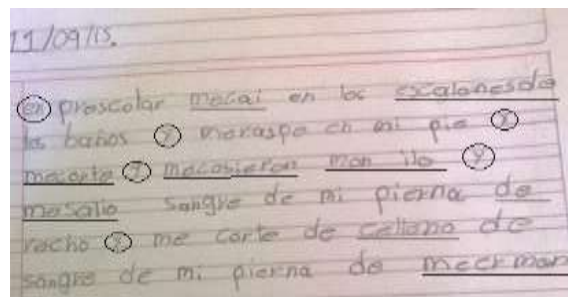 11/09/15.
en prescolar mecai en los escalonesde
los baños y meraspe en mi pie y
mecorte y mecosieron mon ilo y
mesalio sangre de mi pierna de
recho y me corte de
sangre de mi pierna de meerman